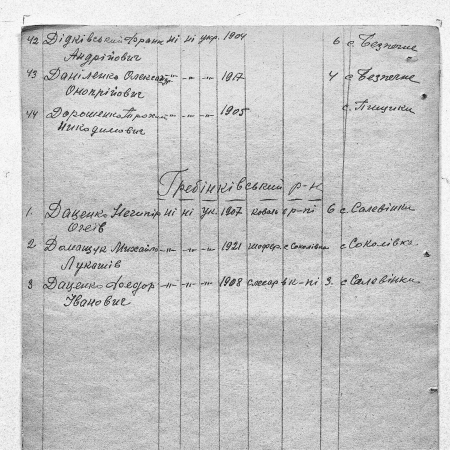 42 Дідківський Франц ні ні укр. 1904 6 с. Безпечне
Андрійович
43 Даніленко Олександр -"- -"- -"- 1917 4 с. Безпечне
Онопрійович
44 Дорошенко Трох. -"- -"- -"- 1905 с. Пищики
Никодимович
Гребінківський р-н
1. Даценко Нечипір ні ні ук. 1907 коваль в р-пі 6 с. Салевінки
2. Домащук Михайло -"- -"- -"- 1921 шофер. с Соколівка с Соколівка
Лукашів
3 Даценко Федор -"- -"- -"- 1908 слюсар в к-пі 3. с Салевінки
Іванович